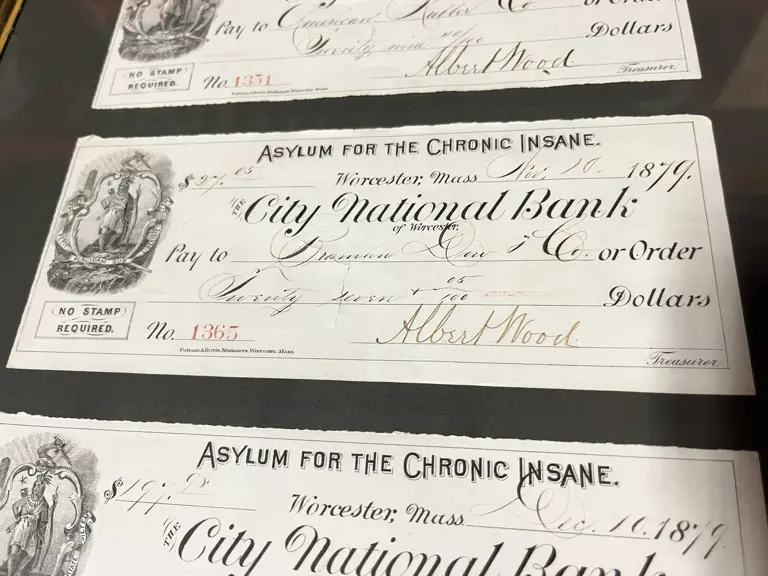 Pay to American Rubber Co. or Order
Twenty nine 40/100 Dollars
NO STAMP REQUIRED.
No. 1351
Albert Wood
Treasurer.
Putnam & Davis, Stationers, Worcester, Mass.
ASYLUM FOR THE CHRONIC INSANE.
$27.05 Worcester, Mass. Nov. 10. 1879.
THE City National Bank
of Worcester.
Pay to Braman Dow & Co. or Order
Twenty seven + 05/100 Dollars
NO STAMP REQUIRED.
No. 1365
Albert Wood
Treasurer.
Putnam & Davis, Stationers, Worcester, Mass.
ASYLUM FOR THE CHRONIC INSANE.
$197. Worcester, Mass. Dec. 10. 1879.
THE City National Bank